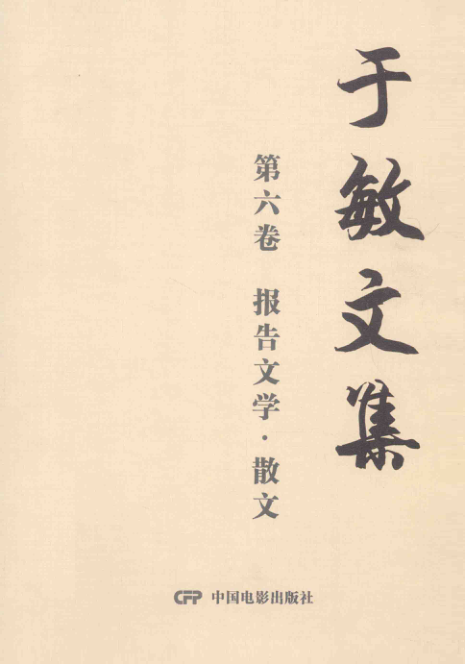 于敏文集
第六卷 报告文学·散文
CFP 中国电影出版社